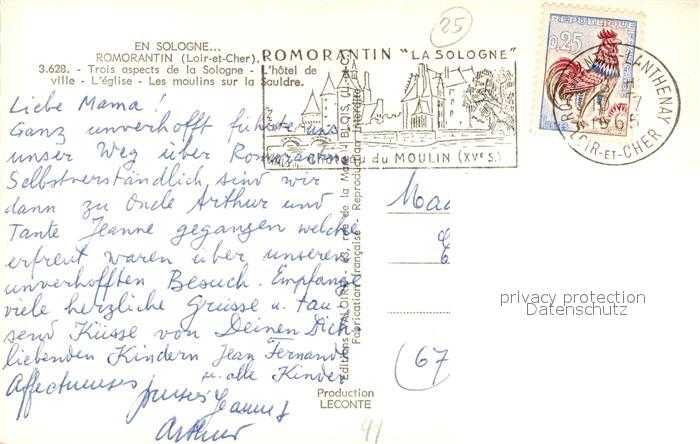 EN SOLOGNE...
ROMORANTIN (Loir-et-Cher).
3.628. - Trois aspects de la Sologne - L'hôtel de
ville - L'église - Les moulins sur la Sauldre.
25
ROMORANTIN "LA SOLOGNE"
Château du MOULIN (XVe S.)
REPUBLIQUE
0,25
LANTHENAY
LOIR-ET-CHER
Liebe Mama!
Ganz unverhofft führte uns
unser Weg über Romorantin
Selbstverständlich sind wir
dann zu Oncle Arthur und
Tante Jeanne gegangen welche
erfreut waren über unseren
unverhofften Besuch. Empfange
viele herzliche Grüsse u. tau
send Küsse von Deinen Dich
liebenden Kindern Jean Fernand
u. alle Kinder
Affectueuses
Jeanne
Arthur
Fabrication Française - Reproduction Interdite
Mad
(67
privacy protection
Datenschutz
Production
LECONTE
41